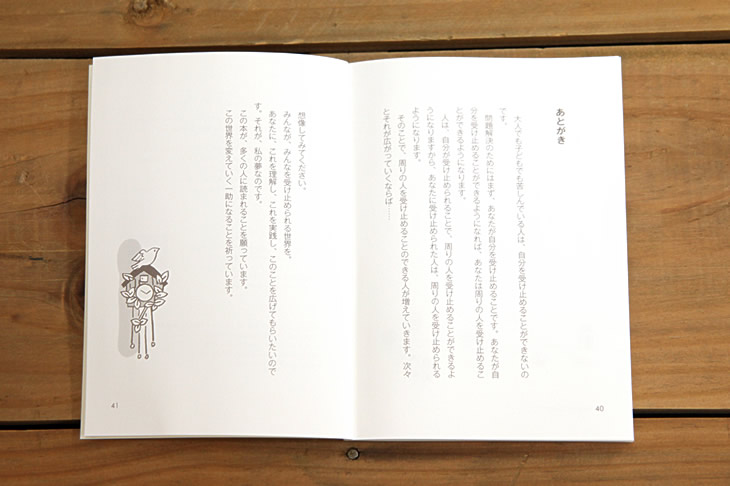 あとがき
大人でも子どもでも苦しんでいる人は、自分を受け止めることができないの
です。
問題解決のためにはまず、あなたが自分を受け止めることです。あなたが自
分を受け止めることができるようになれば、あなたは周りの人を受け止めるこ
とができるようになります。
人は、自分が受け止められることで、周りの人を受け止めることができるよ
うになりますから、あなたに受け止められた人は、周りの人を受け止められる
ようになります。
そのことで、周りの人を受け止めることのできる人が増えていきます。次々
とそれが広がっていくならば……
40
想像してみてください。
みんなが、みんなを受け止められる世界を。
あなたに、これを理解し、これを実践し、このことを広げてもらいたいので
す。それが、私の夢なのです。
この本が、多くの人に読まれることを願っています。
この世界を変えていく一助になることを祈っています。
41